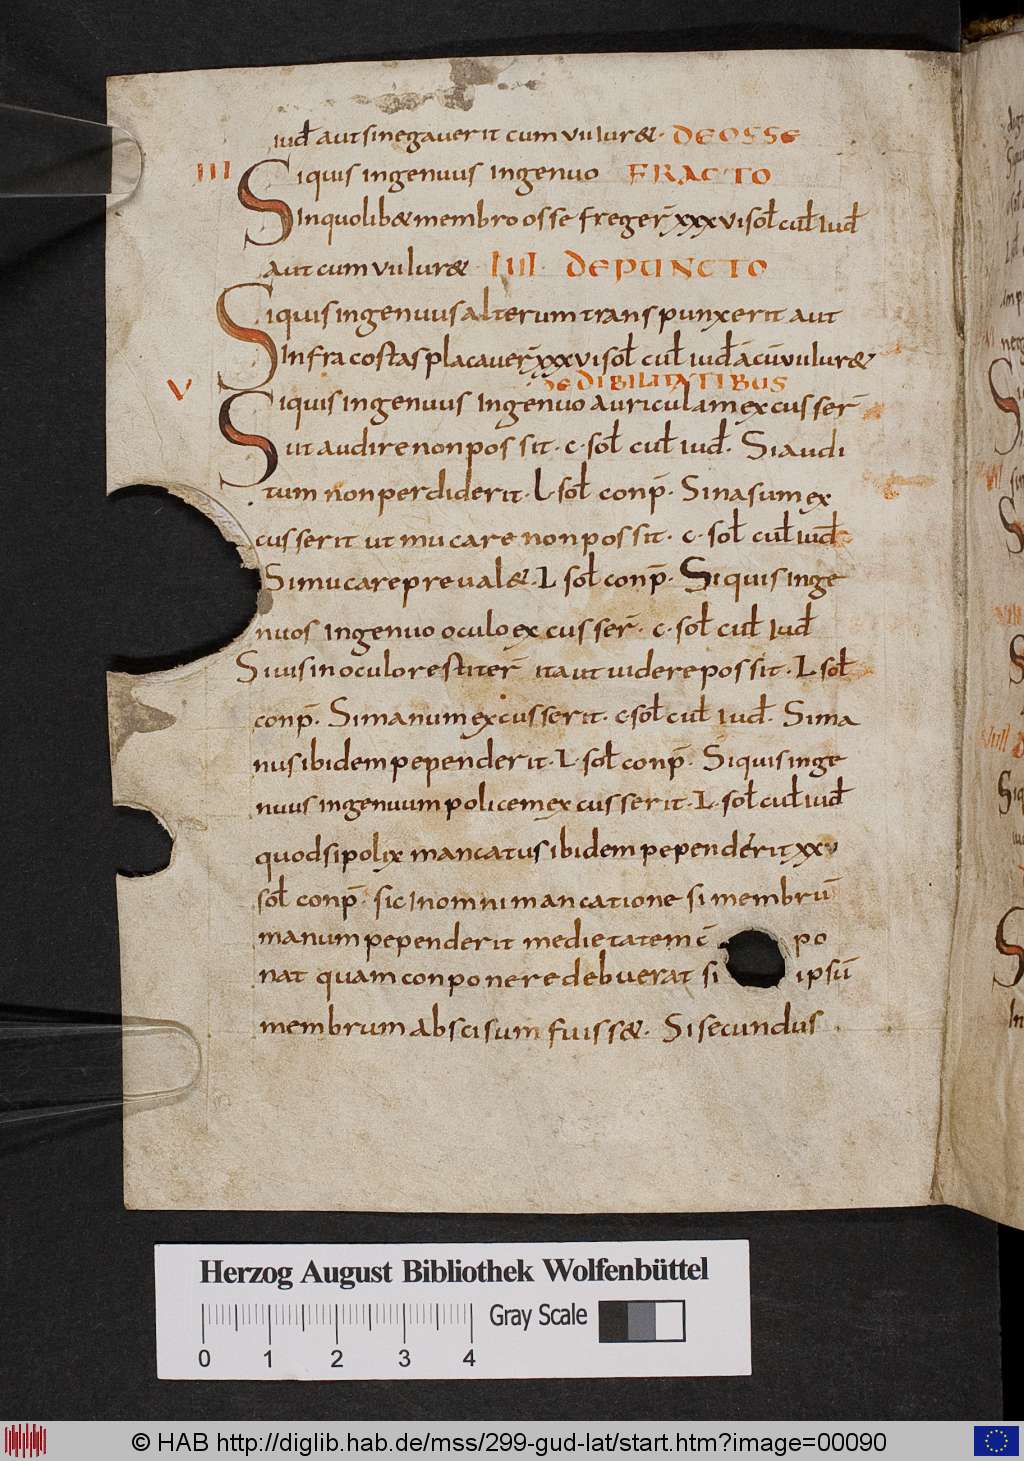 iud aut sinegauerit cum vii iurae. DE OSSE
III Siquis ingenuus ingenuo FRACTO
Inquolib& membro osse freger̄ xxxvi sol cul iud
aut cum vii iurae. IIII. DE PUNCTO
Siquis ingenuus alterum transpunxerit aut
Infra costas placauer̄ xxxvi sol cul iud ac̄ū vii iurae
DE DIBILITATIBUS
V Siquis ingenuus Ingenuo auriculam excusser̄
ut audire non possit. c. sol cul iud. Si audi
tum non perdiderit. L. sol conp̄. Si nasum ex
cusserit ut mucare non possit. c. sol cul iud
Si mucare preual&. L sol conp̄. Siquis inge
nuos Ingenuo oculo excusser̄. c. sol cul Iud
Si uis in oculo restiter̄ ita ut uidere possit. L sol
conp̄. Si manum excusserit. c sol cul iud. Si ma
nus ibidem pependerit. L. sol conp̄. Siquis inge
nuus ingenuum policem excusserit. L. sol cul iud
quod si polix mancatus ibidem pependerit xxv
sol conp̄. sic In omni mancatione si membrū
manum pependerit medietatem c̄ po
nat quam conponere debuerat si ipsū
membrum abscisum fuiss&. Si secundus
Herzog August Bibliothek Wolfenbüttel
Gray Scale
0 1 2 3 4
© HAB http://diglib.hab.de/mss/299-gud-lat/start.htm?image=00090